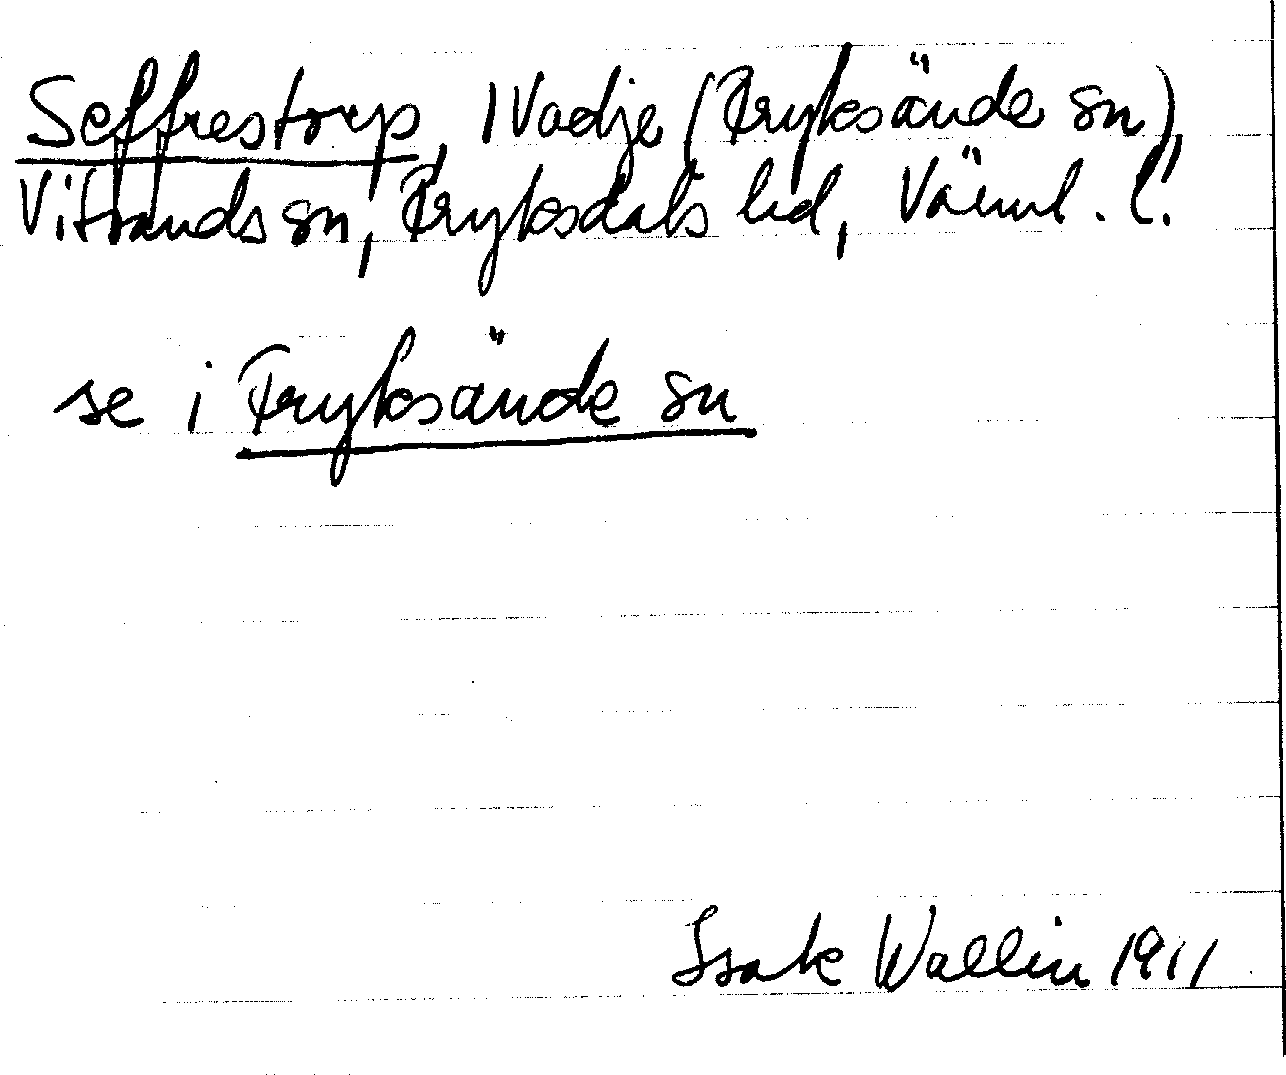 Seffrestorp, 1 Vadje (Fryksände sn),
Vitsands sn, Fryksdals hd, Värml. l.
se i Fryksände sn
Isak Wallin 1911